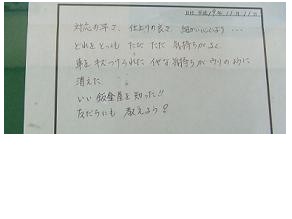 日付 平成19年11月11日
対応の早さ、仕上りの良さ、細かい心くばり…
どれをとっても ただ ただ 気持ちがよく
車をキズつけられた イヤな気持ちが ウソのように
消えた
いい 鈑金屋を知った!!
友だちにも 教えよう!